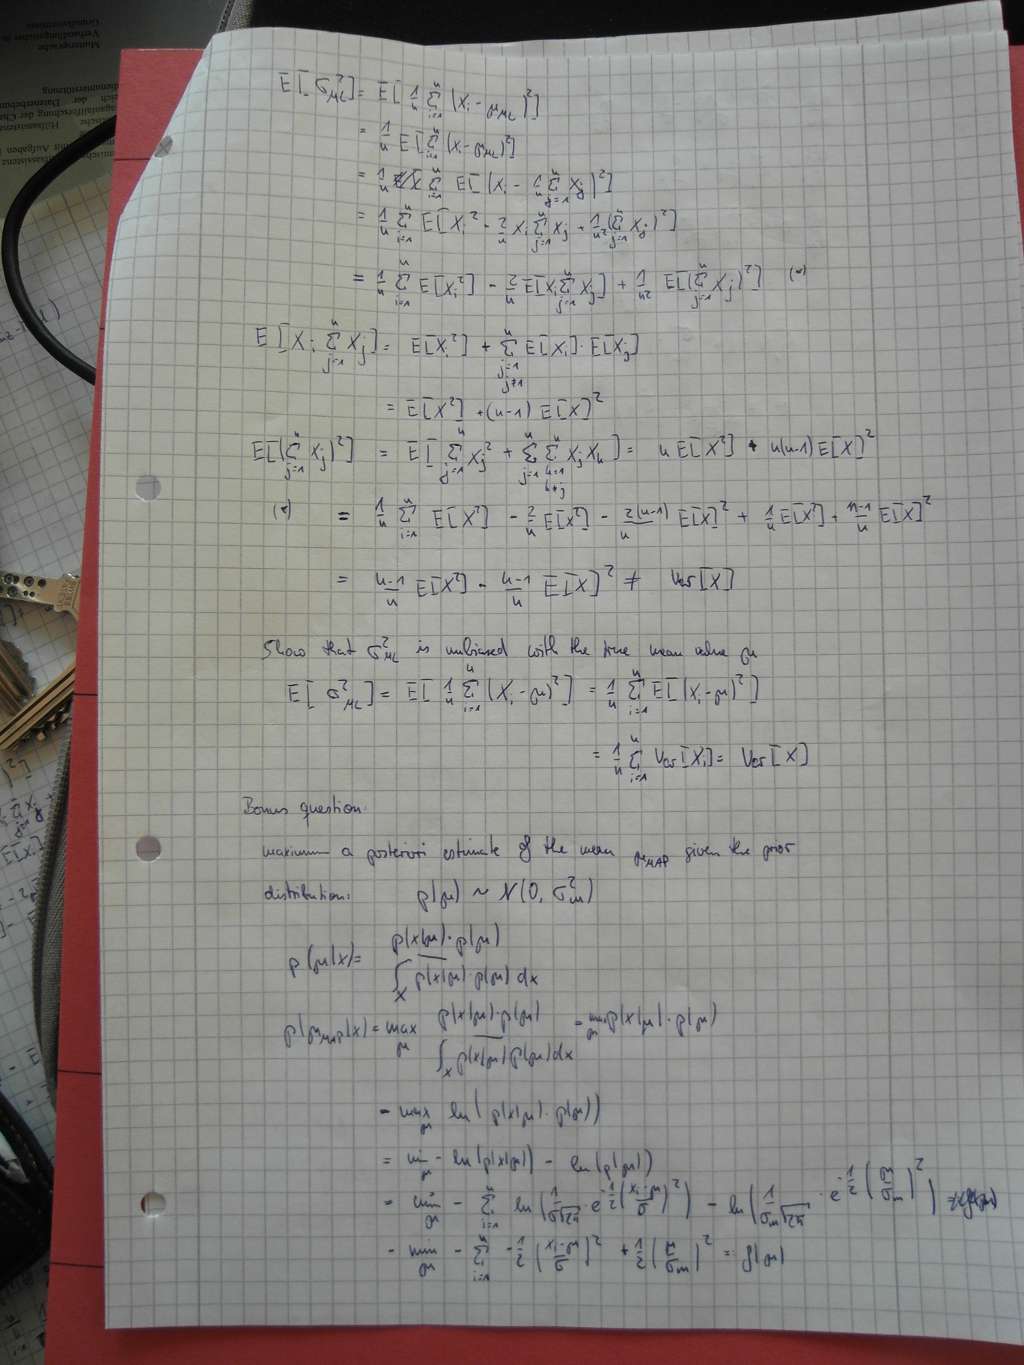 E[σ²_ML] = E[1/n Σ_{i=1}^n (x_i - μ_ML)²]
= 1/n E[Σ_{i=1}^n (x_i - μ_ML)²]
= 1/n Σ_{i=1}^n E[(x_i - 1/n Σ_{j=1}^n x_j)²]
= 1/n Σ_{i=1}^n E[x_i² - 2/n x_i Σ_{j=1}^n x_j + 1/n² (Σ_{j=1}^n x_j)²]
= 1/n Σ_{i=1}^n E[x_i²] - 2/n E[x_i Σ_{j=1}^n x_j] + 1/n² E[(Σ_{j=1}^n x_j)²] (*)
E[x_i Σ_{j=1}^n x_j] = E[x_i²] + Σ_{j=1, j≠i}^n E[x_i]·E[x_j]
= E[x²] + (n-1) E[x]²
E[(Σ_{j=1}^n x_j)²] = E[Σ_{j=1}^n x_j² + Σ_{j=1}^n Σ_{k=1, k≠j}^n x_j x_k] = n E[x²] + n(n-1) E[x]²
(*) = 1/n Σ_{i=1}^n E[x²] - 2/n E[x²] - 2(n-1)/n E[x]² + 1/n E[x²] + n-1/n E[x]²
= n-1/n E[x²] - n-1/n E[x]² ≠ Var[x]
Show that σ²_ML is unbiased with the true mean value μ
E[σ²_ML] = E[1/n Σ_{i=1}^n (x_i - μ)²] = 1/n Σ_{i=1}^n E[(x_i - μ)²]
= 1/n Σ_{i=1}^n Var[x_i] = Var[x]
Bonus question:
maximum a posteriori estimate of the mean μ_MAP given the prior
distribution: p(μ) ~ N(0, σ²_m)
p(μ|x) = p(x|μ)·p(μ) / ∫_x p(x|μ)·p(μ) dx
p(μ_MAP|x) = max_μ p(x|μ)·p(μ) / ∫_x p(x|μ) p(μ) dx = max_μ p(x|μ)·p(μ)
= max_μ ln(p(x|μ)·p(μ))
= min_μ - ln(p(x|μ)) - ln(p(μ))
= min_μ - Σ_{i=1}^n ln(1/σ√2π · e^{-1/2 (x_i-μ/σ)²}) - ln(1/σ_m√2π · e^{-1/2 (μ/σ_m)²})
= min_μ - Σ_{i=1}^n -1/2 (x_i-μ/σ)² + 1/2 (μ/σ_m)² = f(μ)